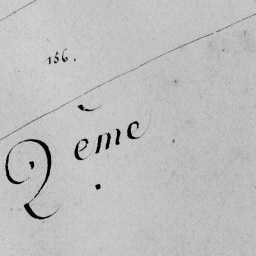 156.
2ème